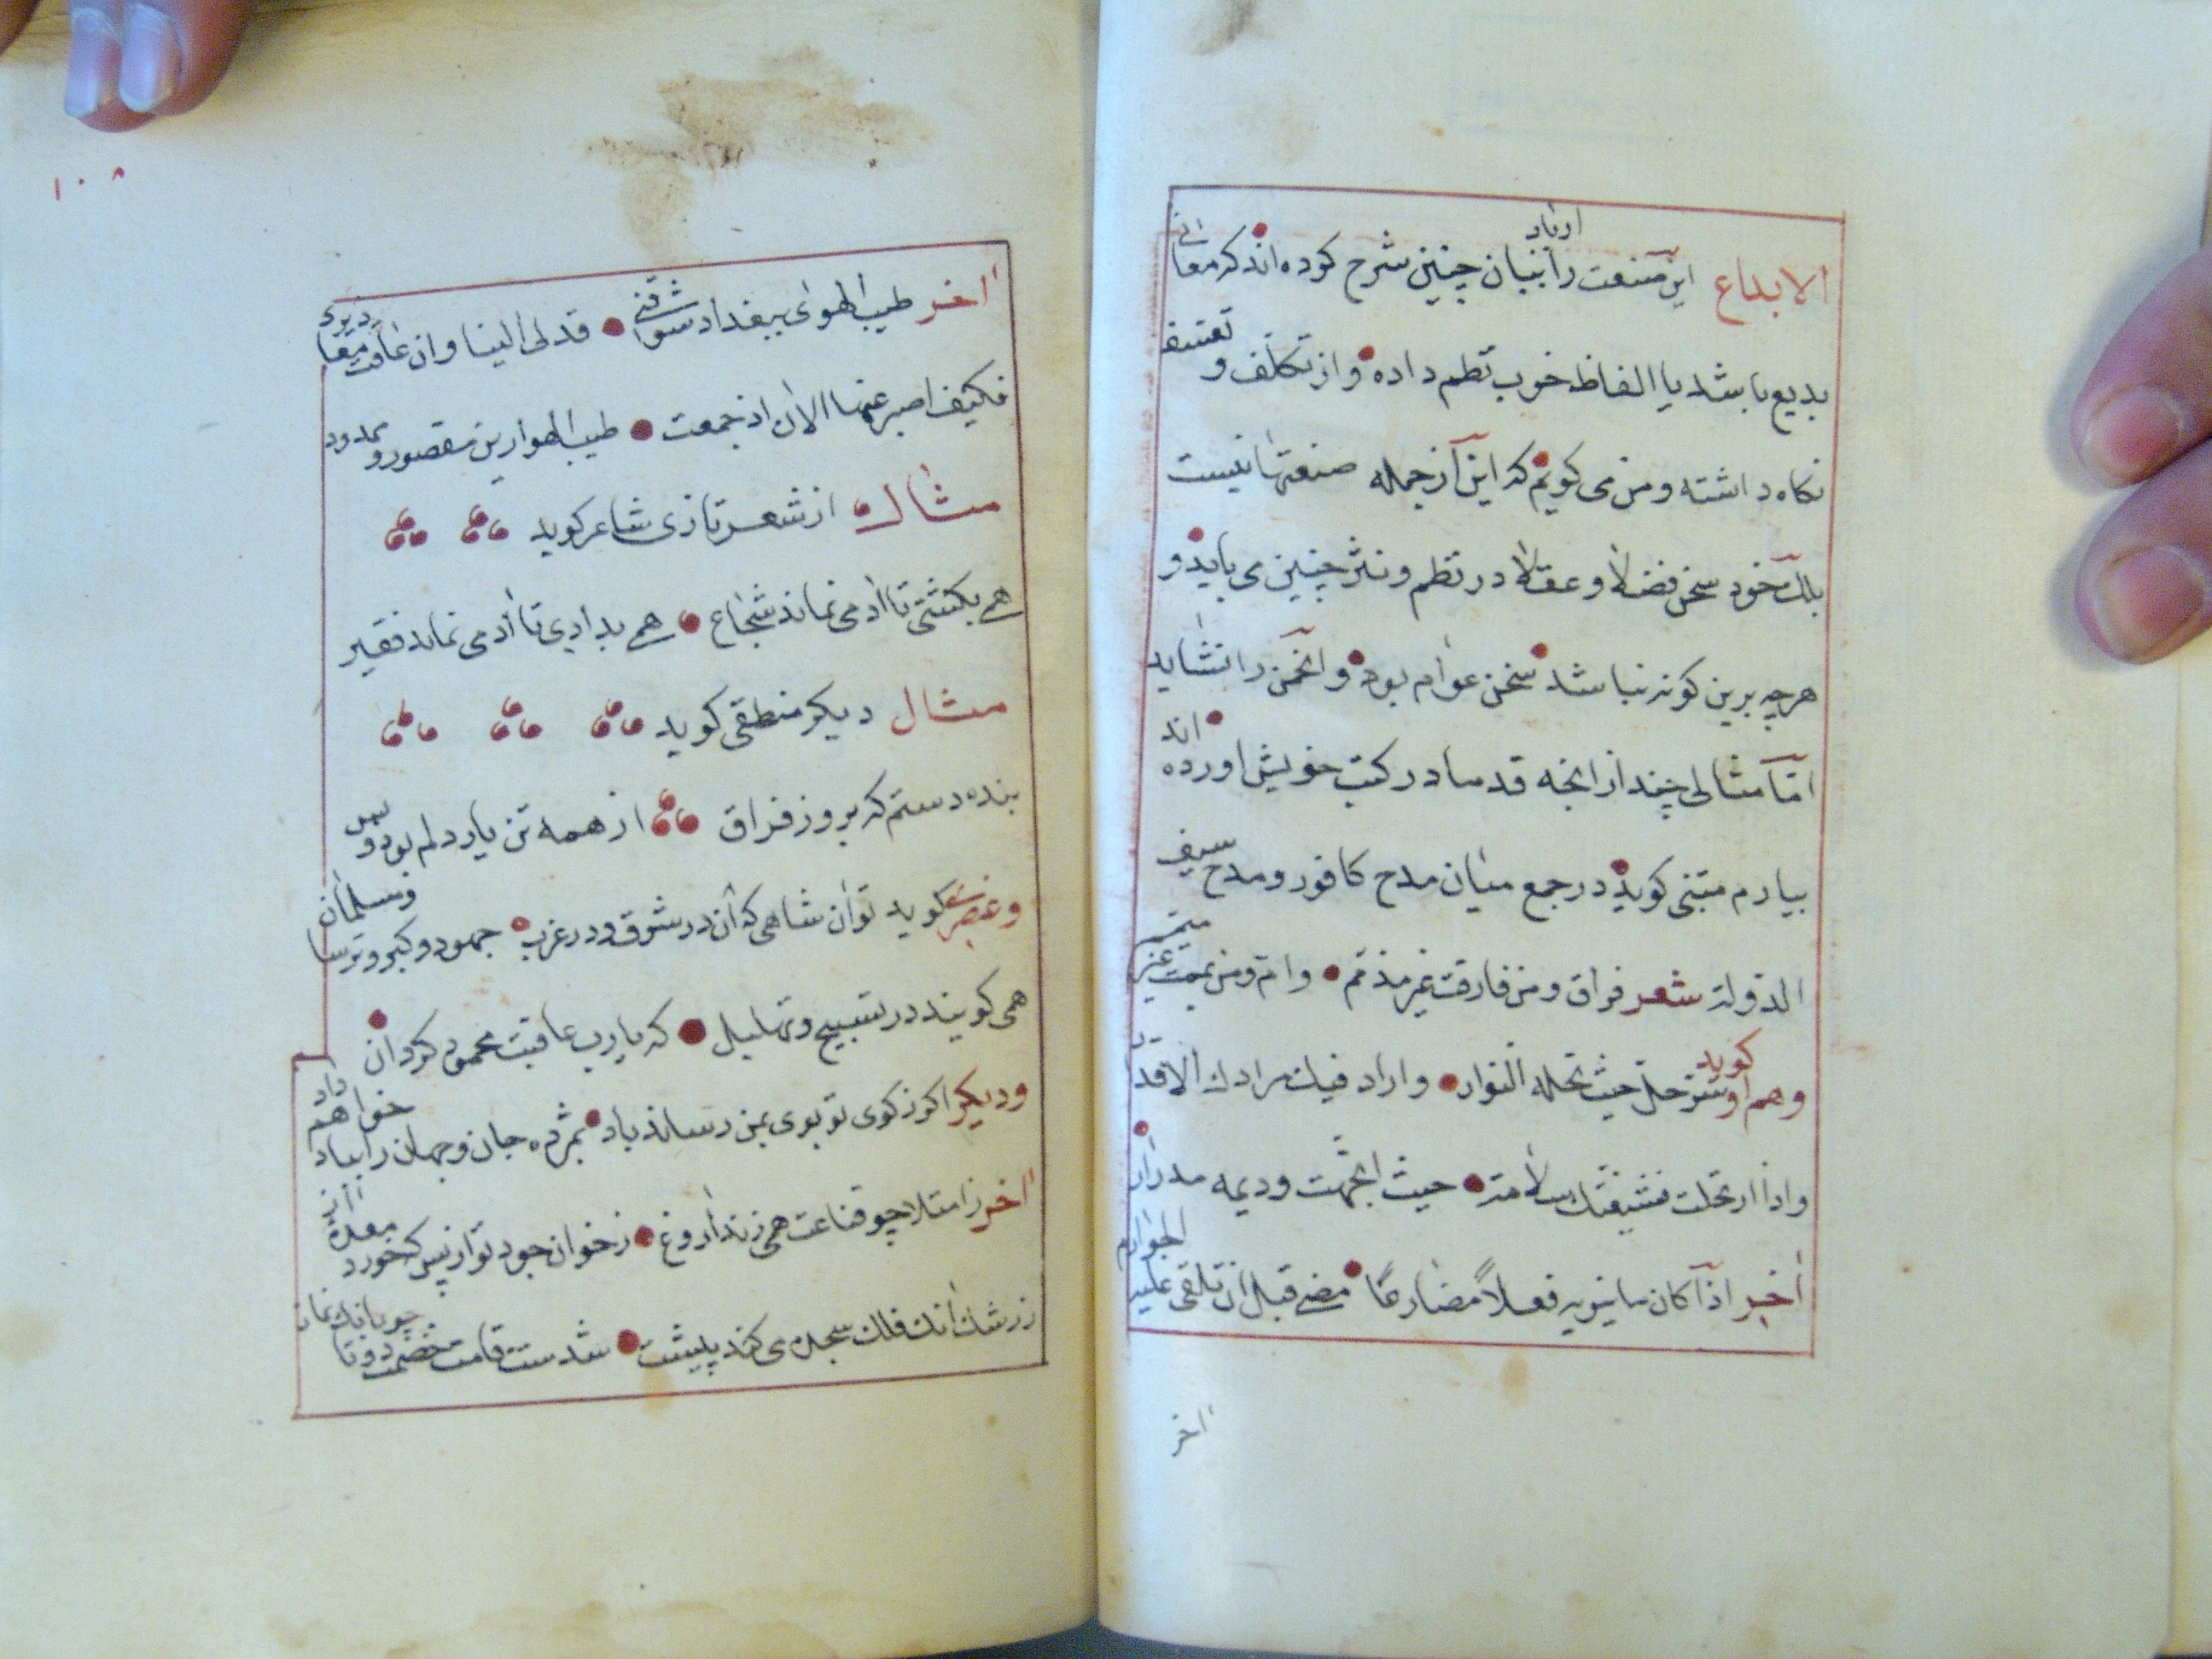 الابداع این صنعت را ارباب بیان چنین شرح کوده اند که معانی
بدیع باشد یا الفاظ خوب نظم داده و از تکلف و تعسف
نکاه داشته و من می کویم که این از جمله صنعتها نیست
بلک خود سخن فضلا و عقلا در نظم و نثر چنین می باید و
هرچه برین کونه نباشد سخن عوام بود و انجمن را نشاید
اما مثالی چند از انجه قدما در کتب خویش اورده اند
بیارم متنبی کوید در جمع میان مدح کافور و مدح سیف
الدولة شعر فراق ومن فارقت غیر مذمم وام ومن یممت خیر میمم
وهم او کوید سر حل حیث تحله النوار واراد فیك مرادك الاقدار
واذا ارتحلت فشیعتك سلامة حیث اتجهت ودیمه مدرار
اخر اذا کان ما ینویه فعلاً مضارعًا مضی قبل ان تلقی علیه الجوازم
اخر
١٠٨
اخر طیب الهوای ببغداد شوقنی قدلی الینا وان عاقت مقادیری
فکیف اصبر عنها الان اذ جمعت طیب الهوارین مقصور و ممدود
مثال از شعر تازی شاعر کوید
هم بکشتی تا ادمی نماند شجاع هم بدادی تا ادمی نماند فقیر
مثال دیکر منطقی کوید
بنده دستم که بروز فراق از همه تن یار دلم بود و بس
وعنصری کوید توان شاهی که اندر شرق و در غرب جهود و کبر و ترسا و مسلمان
همی کویند در تسبیح و تهلیل که یا رب عاقبت محمود کردان
ودیکر اکر ز کوی تو بوی بمن رساند باد بمژده جان و جهان را بباد خواهم داد
اخر ز امتلا چو قناعت همی زند اروغ ز خوان جود تو از بس که خورد معده از
ز رشك انك فلك سجده می کند پیشت شدست قامت خصمت دوتا چو بانك نماز